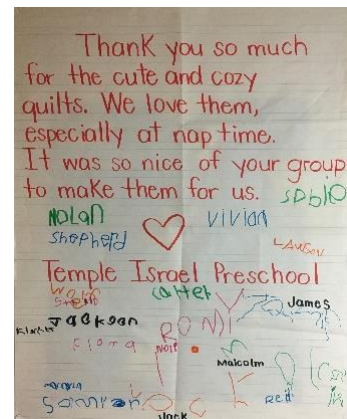 Thank you so much
for the cute and cozy
quilts. We love them,
especially at nap time.
It was so nice of your group
to make them for us.
Nolan
Vivian
Shepherd
Lawson
Temple Israel Preschool
Carter
James
Jackson
RONY
Fiona
Malcolm
Red
Jack